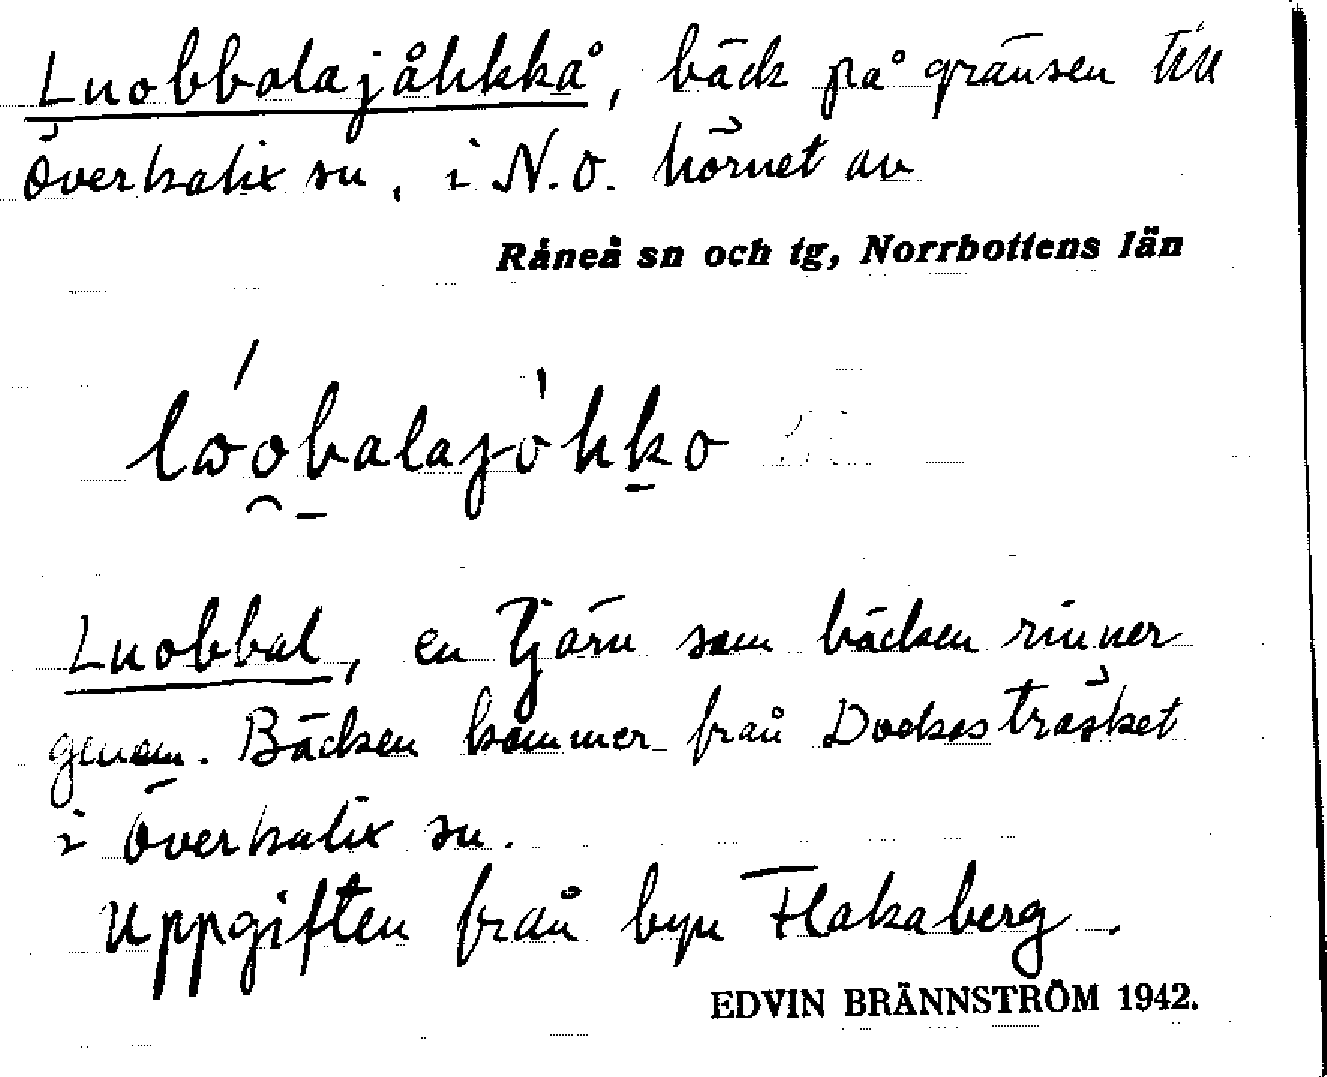 Luobbalajåhkkå, bäck på gränsen till
Överkalix sn, i N.O. hörnet av
Råneå sn och tg, Norrbottens län
lωobalajòhko
Luobbal, en Tjärn som bäcken rinner
genom. Bäcken kommer från Dockasträsket
i Överkalix sn.
Uppgiften från byn Flakaberg.
EDVIN BRÄNNSTRÖM 1942.